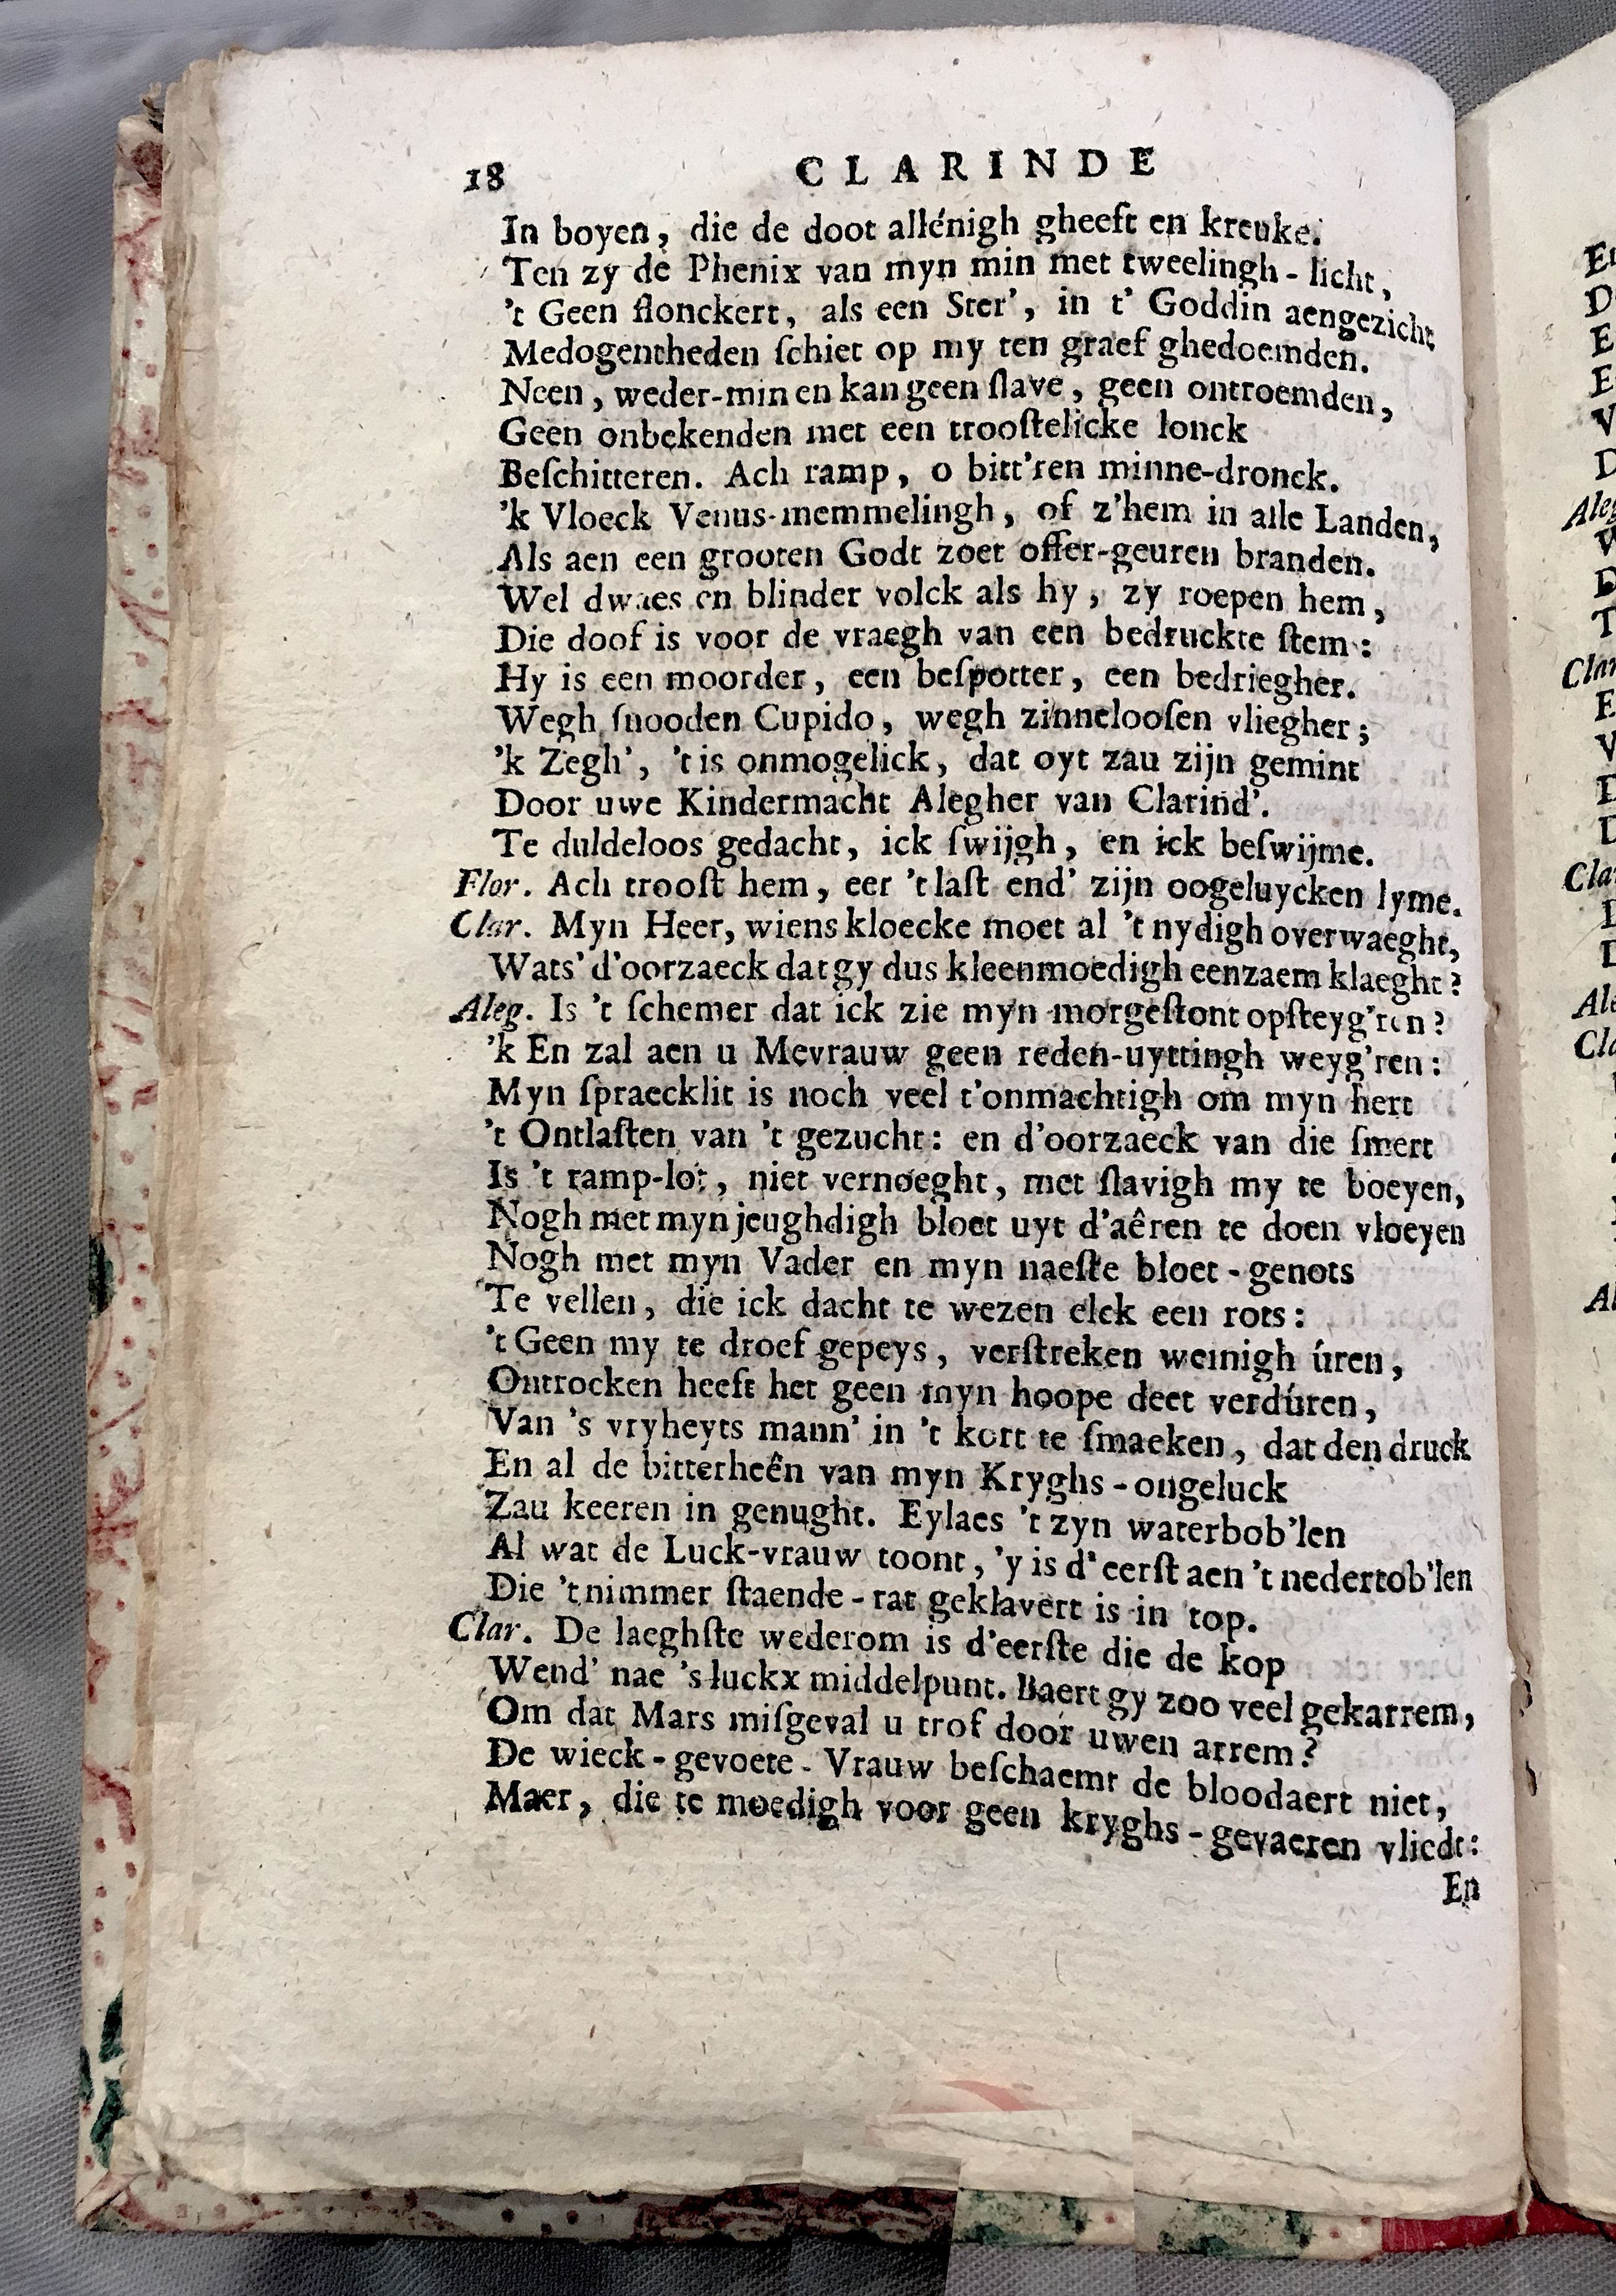 18 CLARINDE
In boyen, die de doot allénigh gheeft en kreuke.
Ten zy de Phenix van myn min met tweelingh-licht,
't Geen flonckert, als een Ster', in t' Goddin aengezicht
Medogentheden ſchiet op my ten graef ghedoemden.
Neen, weder-min en kan geen ſlave, geen ontroemden,
Geen onbekenden met een trooſtelicke lonck
Beſchitteren. Ach ramp, o bitt'ren minne-dronck.
'k Vloeck Venus-memmelingh, of z'hem in alle Landen,
Als aen een grooten Godt zoet offer-geuren branden.
Wel dwaes en blinder volck als hy, zy roepen hem,
Die doof is voor de vraegh van een bedruckte ſtem:
Hy is een moorder, een beſpotter, een bedriegher.
Wegh ſnooden Cupido, wegh zinnelooſen vliegher;
'k Zegh', 't is onmogelick, dat oyt zau zijn gemint
Door uwe Kindermacht Alegher van Clarind'.
Te duldeloos gedacht, ick ſwijgh, en ick beſwijme.
Flor. Ach trooſt hem, eer 't laſt end' zijn oogeluycken lyme.
Clar. Myn Heer, wiens kloecke moet al 't nydigh overwaeght,
Wats' d'oorzaeck dat gy dus kleenmoedigh eenzaem klaeght?
Aleg. Is 't ſchemer dat ick zie myn morgeſtont opſteyg'ren?
'k En zal aen u Mevrauw geen reden-uyttingh weyg'ren:
Myn ſpraecklit is noch veel t'onmachtigh om myn hert
't Ontlaſten van 't gezucht: en d'oorzaeck van die ſmert
Is 't ramp-lot, niet vernoeght, met ſlavigh my te boeyen,
Nogh met myn jeughdigh bloet uyt d'aêren te doen vloeyen
Nogh met myn Vader en myn naeſte bloet-genots
Te vellen, die ick dacht te wezen elck een rots:
't Geen my te droef gepeys, verſtreken weinigh úren,
Ontrocken heeft het geen myn hoope deet verdúren,
Van 's vryheyts mann' in 't kort te ſmaeken, dat den druck
En al de bitterheên van myn Kryghs-ongeluck
Zau keeren in genught. Eylaes 't zyn waterbob'len
Al wat de Luck-vrauw toont, 'y is d'eerſt aen 't nedertob'len
Die 't nimmer ſtaende-rat geklavert is in top.
Clar. De laeghſte wederom is d'eerſte die de kop
Wend' nae 's luckx middelpunt. Baert gy zoo veel gekarrem,
Om dat Mars miſgeval u trof door uwen arrem?
De wieck-gevoete-Vrauw beſchaemt de bloodaert niet,
Maer, die te moedigh voor geen kryghs-gevaeren vliedt:
En